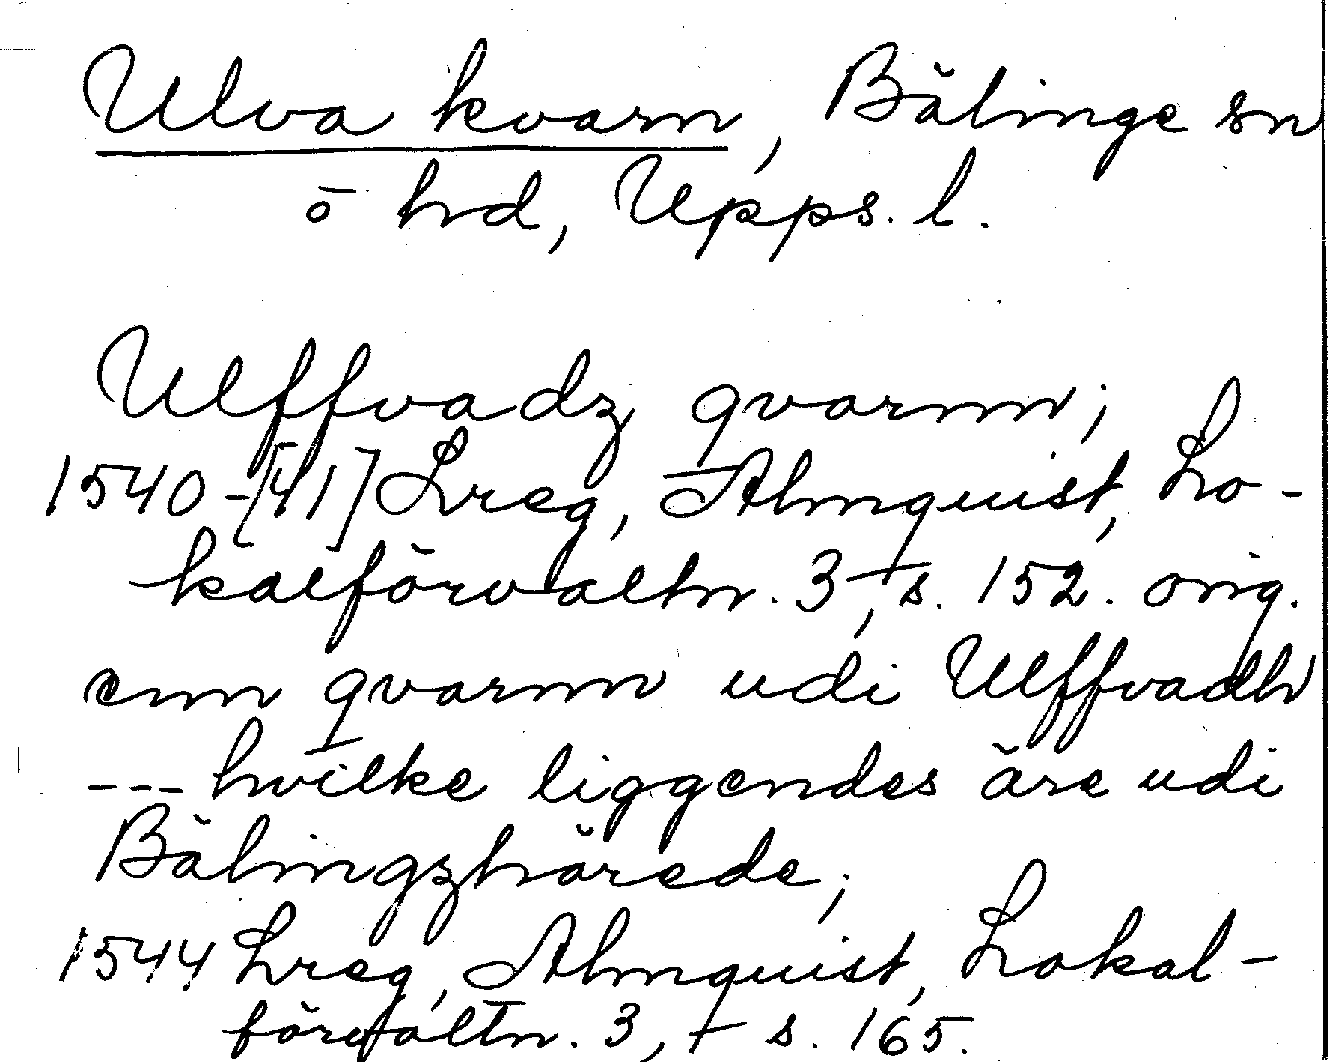 Ulva kvarn, Bälinge sn
o hd, Upps. l.
Ulffvadz qvarnn;
1540-[41] Lreg, Almquist, Lo-
kalförvaltn. 3, s. 152. orig.
enn qvarnn udi Ulffvadh
--- hvilke liggendes äre udi
Bälingzhärede;
1544 Lreg, Almquist, Lokal-
förvaltn. 3, s. 165.